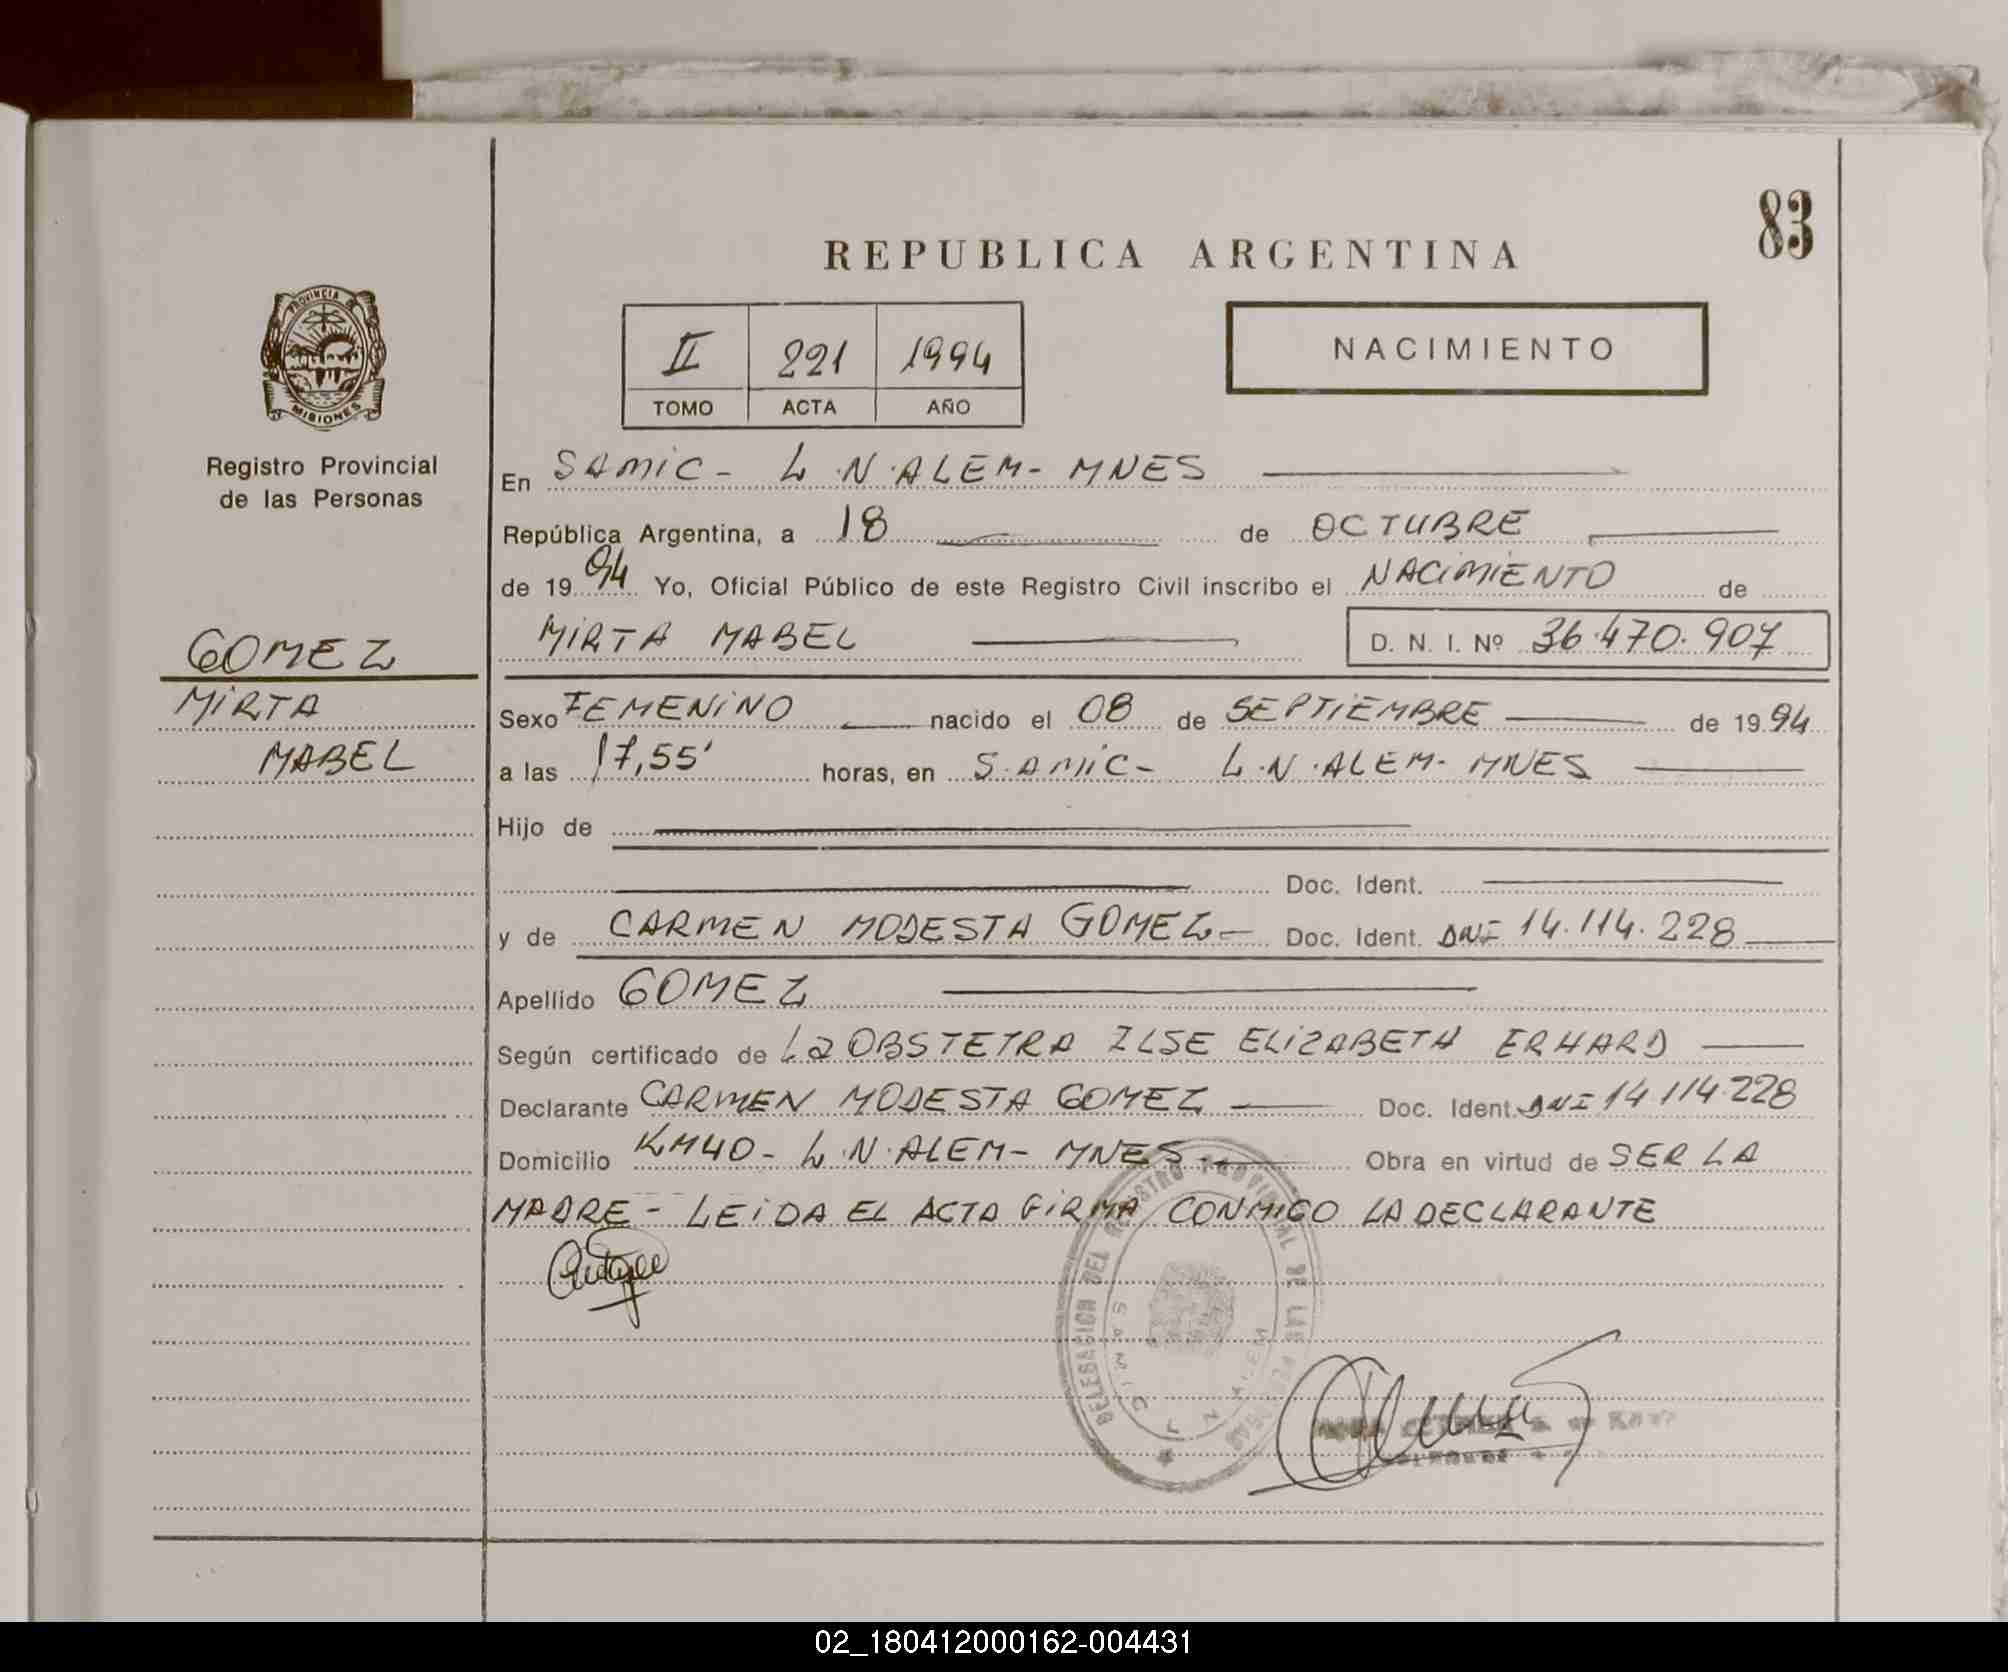 83
REPUBLICA ARGENTINA
PROVINCIA DE
MISIONES
II 221 1994
TOMO ACTA AÑO
NACIMIENTO
Registro Provincial
de las Personas
GOMEZ
MIRTA
MABEL
En SAMIC - L.N.ALEM - MNES
República Argentina, a 18 de OCTUBRE
de 1994 Yo, Oficial Público de este Registro Civil inscribo el NACIMIENTO de
MIRTA MABEL D. N. I. Nº 36.470.907
Sexo FEMENINO nacido el 08 de SEPTIEMBRE de 1994
a las 17,55' horas, en SAMIC - L.N.ALEM - MNES
Hijo de
Doc. Ident.
y de CARMEN MODESTA GOMEZ - Doc. Ident. DNI 14.114.228
Apellido GOMEZ
Según certificado de La OBSTETRA ILSE ELIZABETH ERHARD
Declarante CARMEN MODESTA GOMEZ Doc. Ident. DNI 14.114.228
Domicilio KM40 - L.N.ALEM - MNES - Obra en virtud de SER LA
MADRE - LEIDA EL ACTA FIRMA CONMIGO LA DECLARANTE
DELEGACION DEL REGISTRO PROVINCIAL DE LAS PERSONAS
SAMIC L N ALEM
02_180412000162-004431